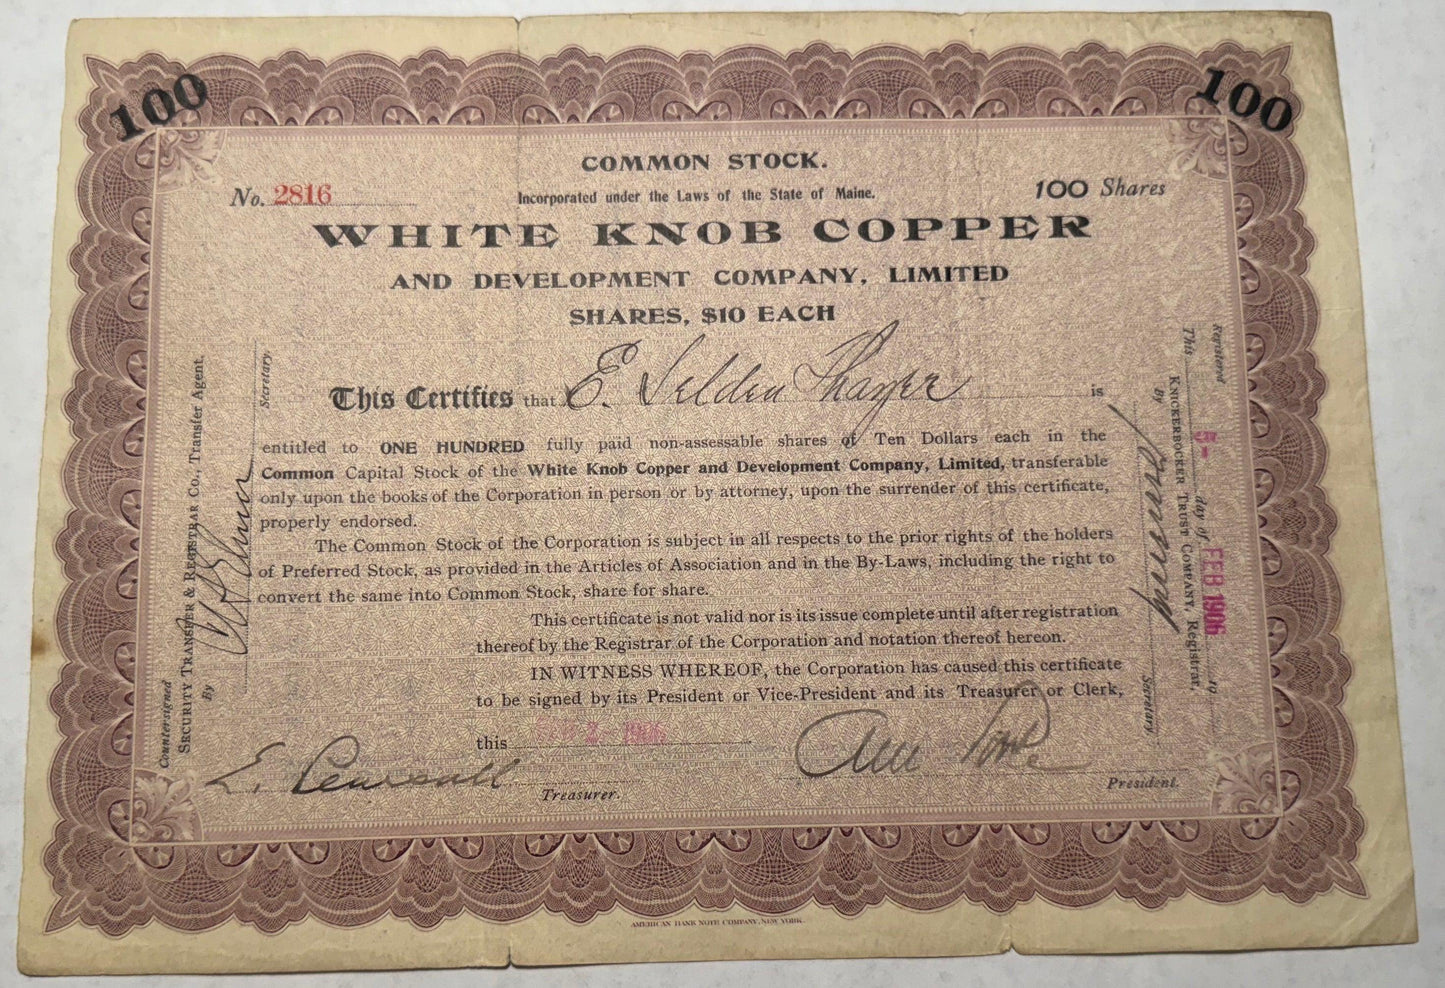 100
100
COMMON STOCK.
No. 2816
Incorporated under the Laws of the State of Maine.
100 Shares
WHITE KNOB COPPER
AND DEVELOPMENT COMPANY, LIMITED
SHARES, $10 EACH
This Certifies that E. Selden Thayer is
entitled to ONE HUNDRED fully paid non-assessable shares of Ten Dollars each in the
Common Capital Stock of the White Knob Copper and Development Company, Limited, transferable
only upon the books of the Corporation in person or by attorney, upon the surrender of this certificate,
properly endorsed.
The Common Stock of the Corporation is subject in all respects to the prior rights of the holders
of Preferred Stock, as provided in the Articles of Association and in the By-Laws, including the right to
convert the same into Common Stock, share for share.
This certificate is not valid nor is its issue complete until after registration
thereof by the Registrar of the Corporation and notation thereof hereon.
IN WITNESS WHEREOF, the Corporation has caused this certificate
to be signed by its President or Vice-President and its Treasurer or Clerk,
this 1906
E. Pearsall
Treasurer.
President.
Countersigned
SECURITY TRANSFER & REGISTRAR CO., Transfer Agent.
By
Secretary.
Registered
This 5- day of FEB 1906 to
KNICKERBOCKER TRUST COMPANY, Registrar,
By
Secretary
AMERICAN BANK NOTE COMPANY, NEW YORK.